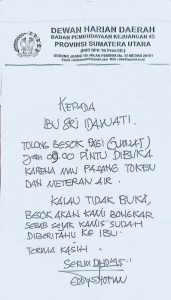 DEWAN HARIAN DAERAH
BADAN PEMBUDAYAAN KEJUANGAN 45
PROVINSI SUMATERA UTARA
KEPADA
IBU SRI IDAWATI.
TOLONG BESOK PAGI (JUMAT)
Jam 09.00 PINTU DIBUKA
KARENA MAU PASANG TOKEN
DAN METERAN AIR.
KALAU TIDAK BUKA,
BESOK AKAN KAMI BONGKAR
SEBAB SEJAK KAMIS SUDAH
DIBERITAHU KE IBU.
TERIMA KASIH.